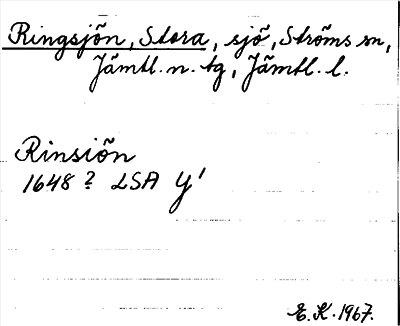 Ringsjön, Stora, sjö, Ströms sn,
Jämtl. n. tg, Jämtl. l.
Rinsiön
1648 ? LSA Y'
E. K. 1967.